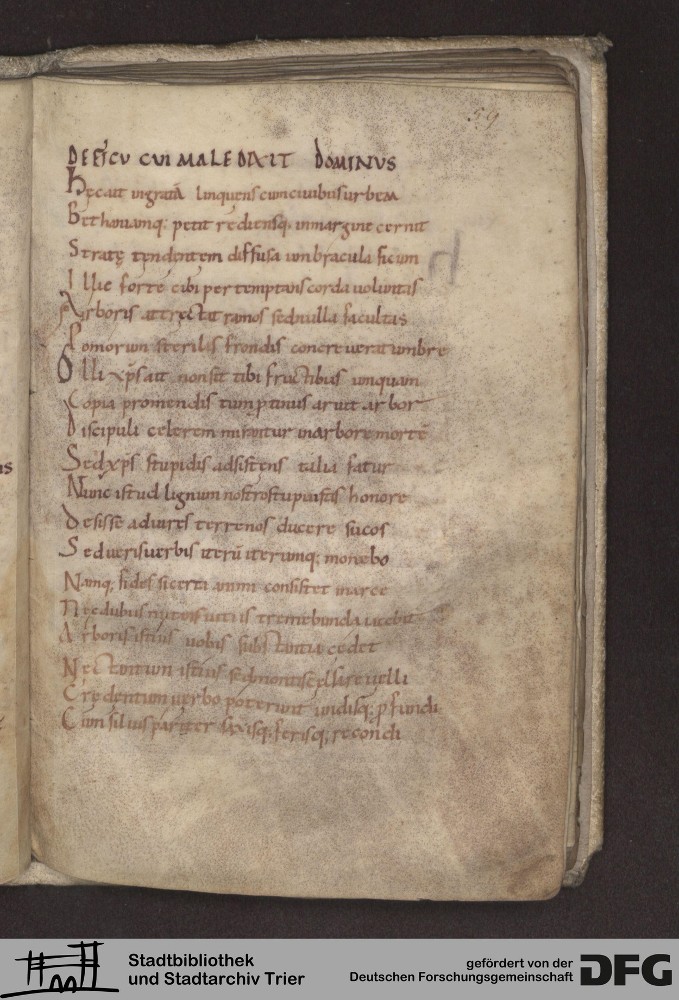 59
DE FICU CVI MALEDIXIT DOMINUS
Hęc ait ingratā linquens cum ciuibus urbem
Bethaniamq; petit rediensq; in margine cernit
Stratę tendentem diffusa umbracula ficum
Illic forte cibi pertemptans corda uoluntas
Arboris attrectat ramos sed nulla facultas
Pomorum sterilis frondis concreuerat umbre
Olli xp̄s ait non sit tibi fructibus umquam
Copia promendis tum ꝓtinus aruit arbor
Discipuli celerem mirantur in arbore mortē
Sed xp̄s stupidis adsistens talia fatur
Nunc istud lignum nostro stupuistis honore
Desisse ad uires terrenos ducere sucos
Sed ueris uerbis iterū iterumq; monebo
Namq; fides si certa animi consistet in arce
Nec dubiis nutans uitiis tremebunda iacebit
Arboris istius uobis substantia cedet
Nec tantum istius sed montis cellsi reuelli
Credentum uerbo poterunt undisq; ꝓfundi
Cum siluis pariter saxisq; ferisq; recondi
h
Stadtbibliothek
und Stadtarchiv Trier
gefördert von der
Deutschen Forschungsgemeinschaft
DFG